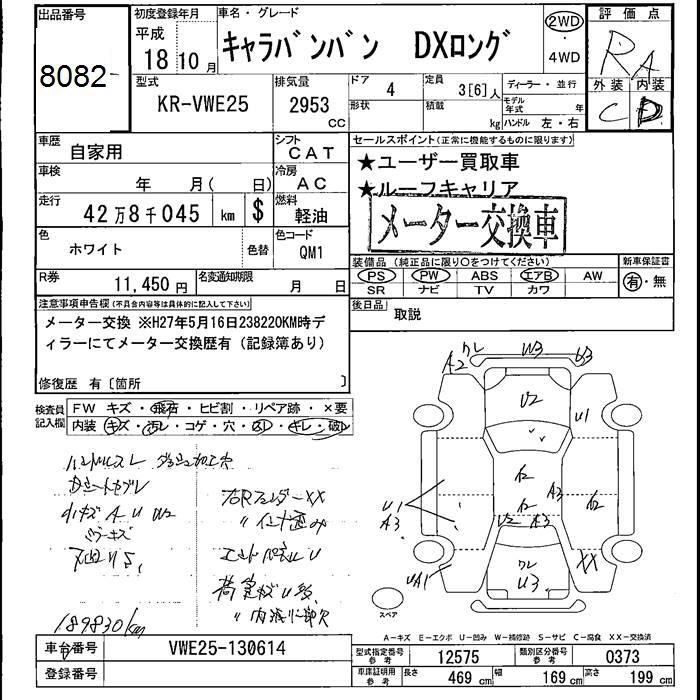 出品番号
8082
初度登録年月
平成
18年10月
車名・グレード
キャラバンバン DXロング
2WD
・
4WD
評価点
RA
外装 内装
C D
型式
KR-VWE25
排気量
2953
CC
ドア
4
定員
3[6]人
形状
積載
kg
ディーラー・並行
モデル年式 年
ハンドル 左・右
車歴
自家用
シフト
CAT
セールスポイント(正常に機能するものに限ります)
★ユーザー買取車
★ルーフキャリア
メーター交換車
車検
年 月( 日)
冷房
AC
走行
42万8千045 km $
燃料
軽油
色
ホワイト
色替
色コード
QM1
R券
11,450円
名変通知期限
月 日
装備品 (純正品に限り○をつけてください)
新車保証書
PS PW ABS エアB AW
SR ナビ TV カワ
有・無
後日品
取説
注意事項申告欄(不具合内容等は具体的に記入して下さい)
メーター交換 ※H27年5月16日238220KM時デ
ィラーにてメーター交換歴有(記録簿あり)
修復歴 有〔箇所 〕
検査員記入欄
FW キズ・飛石・ヒビ割・リペア跡・×要
内装 キズ・汚レ・コゲ・穴・スレ・キレ・破レ
ハンドルスレ ダッシュ加工穴
小キズ A U W2
右Rフェンダー XX
〃 インナー歪み
エンドパネル U
189830km
A2 ワレ W3 U3
U2 U1
A2
A3
U1
A3
A2
A2
U2 A3
UA1
ワレ
U3
XX
スペア
A-キズ E-エクボ U-凹み W-補修跡 S-サビ C-腐食 XX-交換済
車台番号
VWE25-130614
登録番号
型式指定番号
参考
12575
類別区分番号
参考
0373
車庫証明用
参考
長さ 469 cm
幅 169 cm
高さ 199 cm